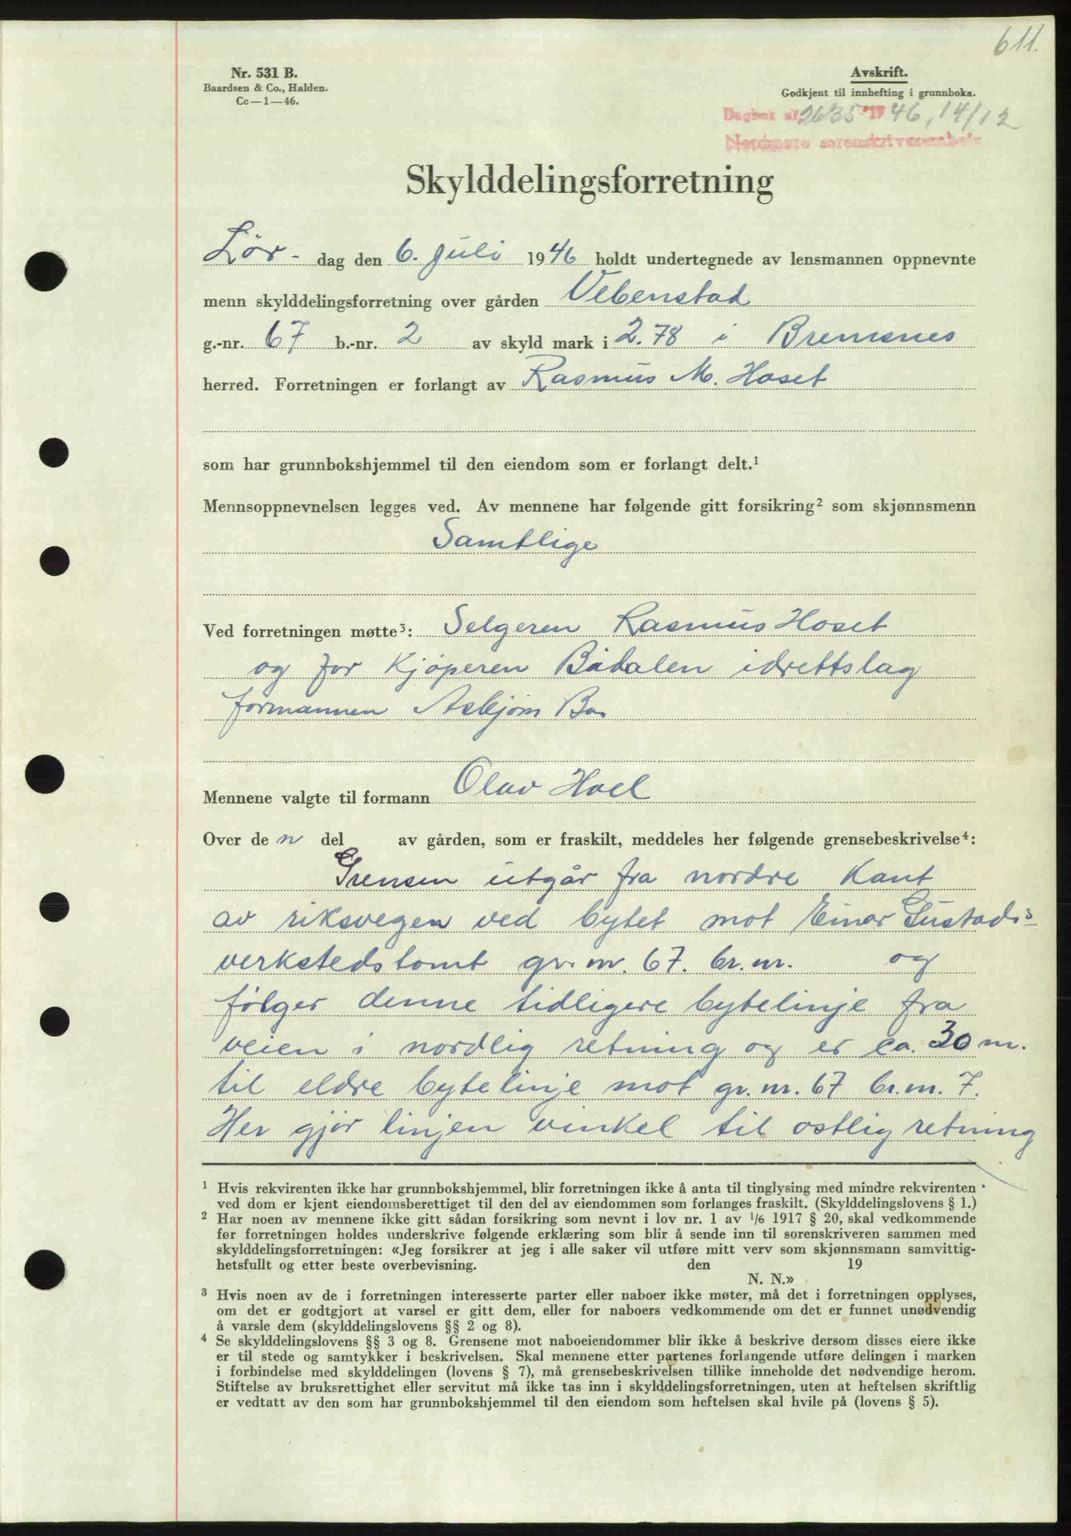 611.
Nr. 531 B.
Baardsen & Co., Halden.
Cc—1—46.
Avskrift.
Godkjent til innhefting i grunnboka.
Dagbok nr 2635 1946, 14/12
Nordmøre sorenskriverembete
Skylddelingsforretning
Lör- dag den 6. juli 1946 holdt undertegnede av lensmannen oppnevnte
menn skylddelingsforretning over gården Vebenstad
g.-nr. 67 b.-nr. 2 av skyld mark i 2.78 i Bremsnes
herred. Forretningen er forlangt av Rasmus M. Hoset
som har grunnbokshjemmel til den eiendom som er forlangt delt.¹
Mennsoppnevnelsen legges ved. Av mennene har følgende gitt forsikring² som skjønnsmenn
Samtlige
Ved forretningen møtte³: Selgeren Rasmus Hoset
og for Kjöperen Bådalen idrettslag
formannen Asbjörn Bae
Mennene valgte til formann Olav Hoel
Over de n del av gården, som er fraskilt, meddeles her følgende grensebeskrivelse⁴:
Grensen utgår fra nordre Kant
av riksvegen ved bytet mot Einar Gustads
verkstedstomt gr. nr. 67. br. nr. og
følger denne tidligere bytelinje fra
veien i nordlig retning og er ca. 30 m.
til eldre bytelinje mot gr. nr. 67 br. nr. 7.
Her gjör linjen vinkel til östlig retning
¹ Hvis rekvirenten ikke har grunnbokshjemmel, blir forretningen ikke å anta til tinglysing med mindre rekvirenten
ved dom er kjent eiendomsberettiget til den del av eiendommen som forlanges fraskilt. (Skylddelingslovens § 1.)
² Har noen av mennene ikke gitt sådan forsikring som nevnt i lov nr. 1 av 1/6 1917 § 20, skal vedkommende
før forretningen holdes underskrive følgende erklæring som blir å sende inn til sorenskriveren sammen med
skylddelingsforretningen: «Jeg forsikrer at jeg i alle saker vil utføre mitt verv som skjønnsmann samvittig-
hetsfullt og etter beste overbevisning. den 19
N. N.»
³ Hvis noen av de i forretningen interesserte parter eller naboer ikke møter, må det i forretningen opplyses,
om det er godtgjort at varsel er gitt dem, eller for naboers vedkommende om det er funnet unødvendig
å varsle dem (skylddelingslovens §§ 2 og 8).
⁴ Se skylddelingslovens §§ 3 og 8. Grensene mot naboeiendommer blir ikke å beskrive dersom disses eiere ikke
er til stede og samtykker i beskrivelsen. Skal mennene etter partenes forlangende utføre delingen i marken
i forbindelse med skylddelingen (lovens § 7), må grensebeskrivelsen tillike inneholde det nødvendige herom.
Stiftelse av bruksrettighet eller servitut må ikke tas inn i skylddelingsforretningen, uten at heftelsen skriftlig
er vedtatt av den som har grunnbokshjemmel til den eiendom som heftelsen skal hvile på (lovens § 5).